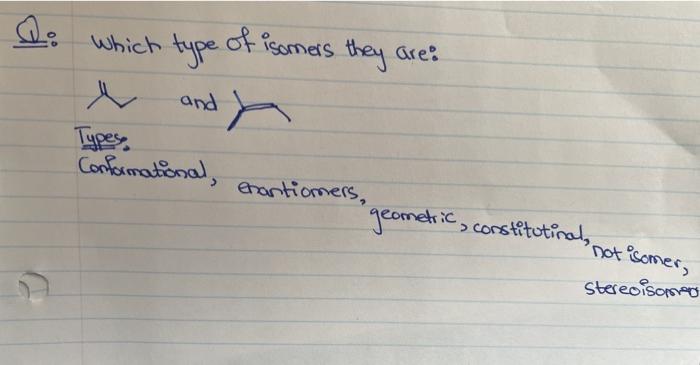 Q: Which type of isomers they are:
and
Types:
Conformational, enantiomers, geometric, constitutinal, not isomer,
stereoisomers